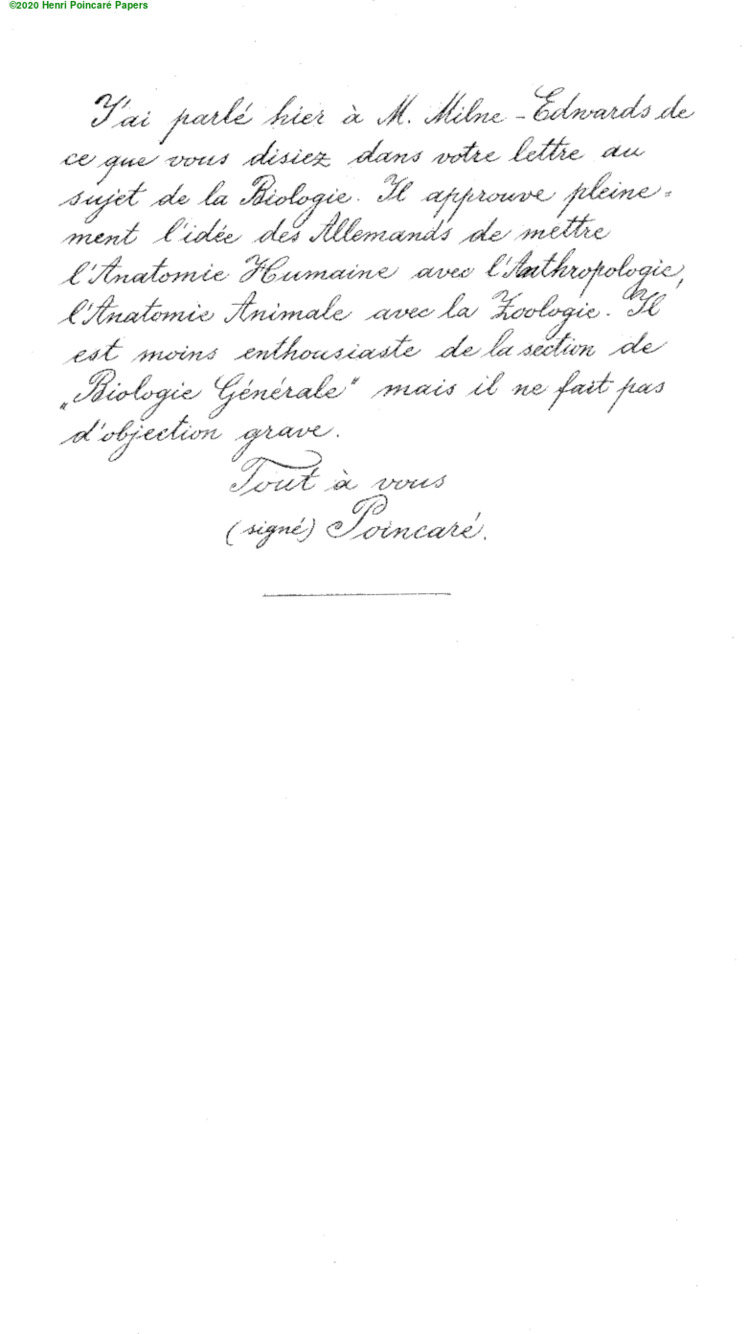 ©2020 Henri Poincaré Papers
J'ai parlé hier à M. Milne-Edwards de
ce que vous disiez dans votre lettre au
sujet de la Biologie. Il approuve pleine-
ment l'idée des Allemands de mettre
l'Anatomie Humaine avec l'Anthropologie,
l'Anatomie Animale avec la Zoologie. Il
est moins enthousiaste de la section de
„Biologie Générale" mais il ne fait pas
d'objection grave.
Tout à vous
(signé) Poincaré.